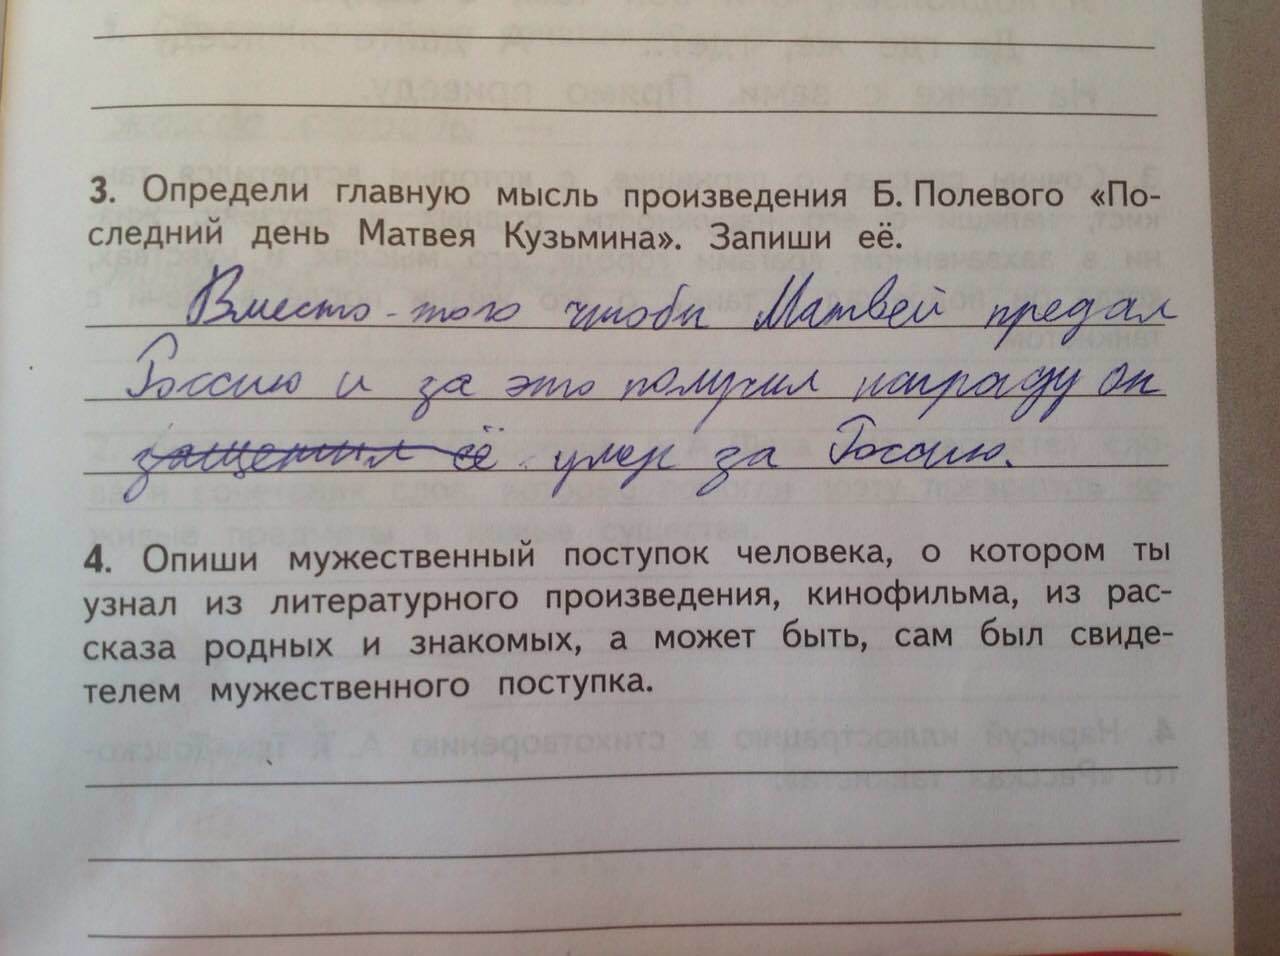 3. Определи главную мысль произведения Б. Полевого «По-
следний день Матвея Кузьмина». Запиши её.
Вместо-того чтобы Матвей предал
Россию и за это получил награду он
защетил её умер за Россию.
4. Опиши мужественный поступок человека, о котором ты
узнал из литературного произведения, кинофильма, из рас-
сказа родных и знакомых, а может быть, сам был свиде-
телем мужественного поступка.